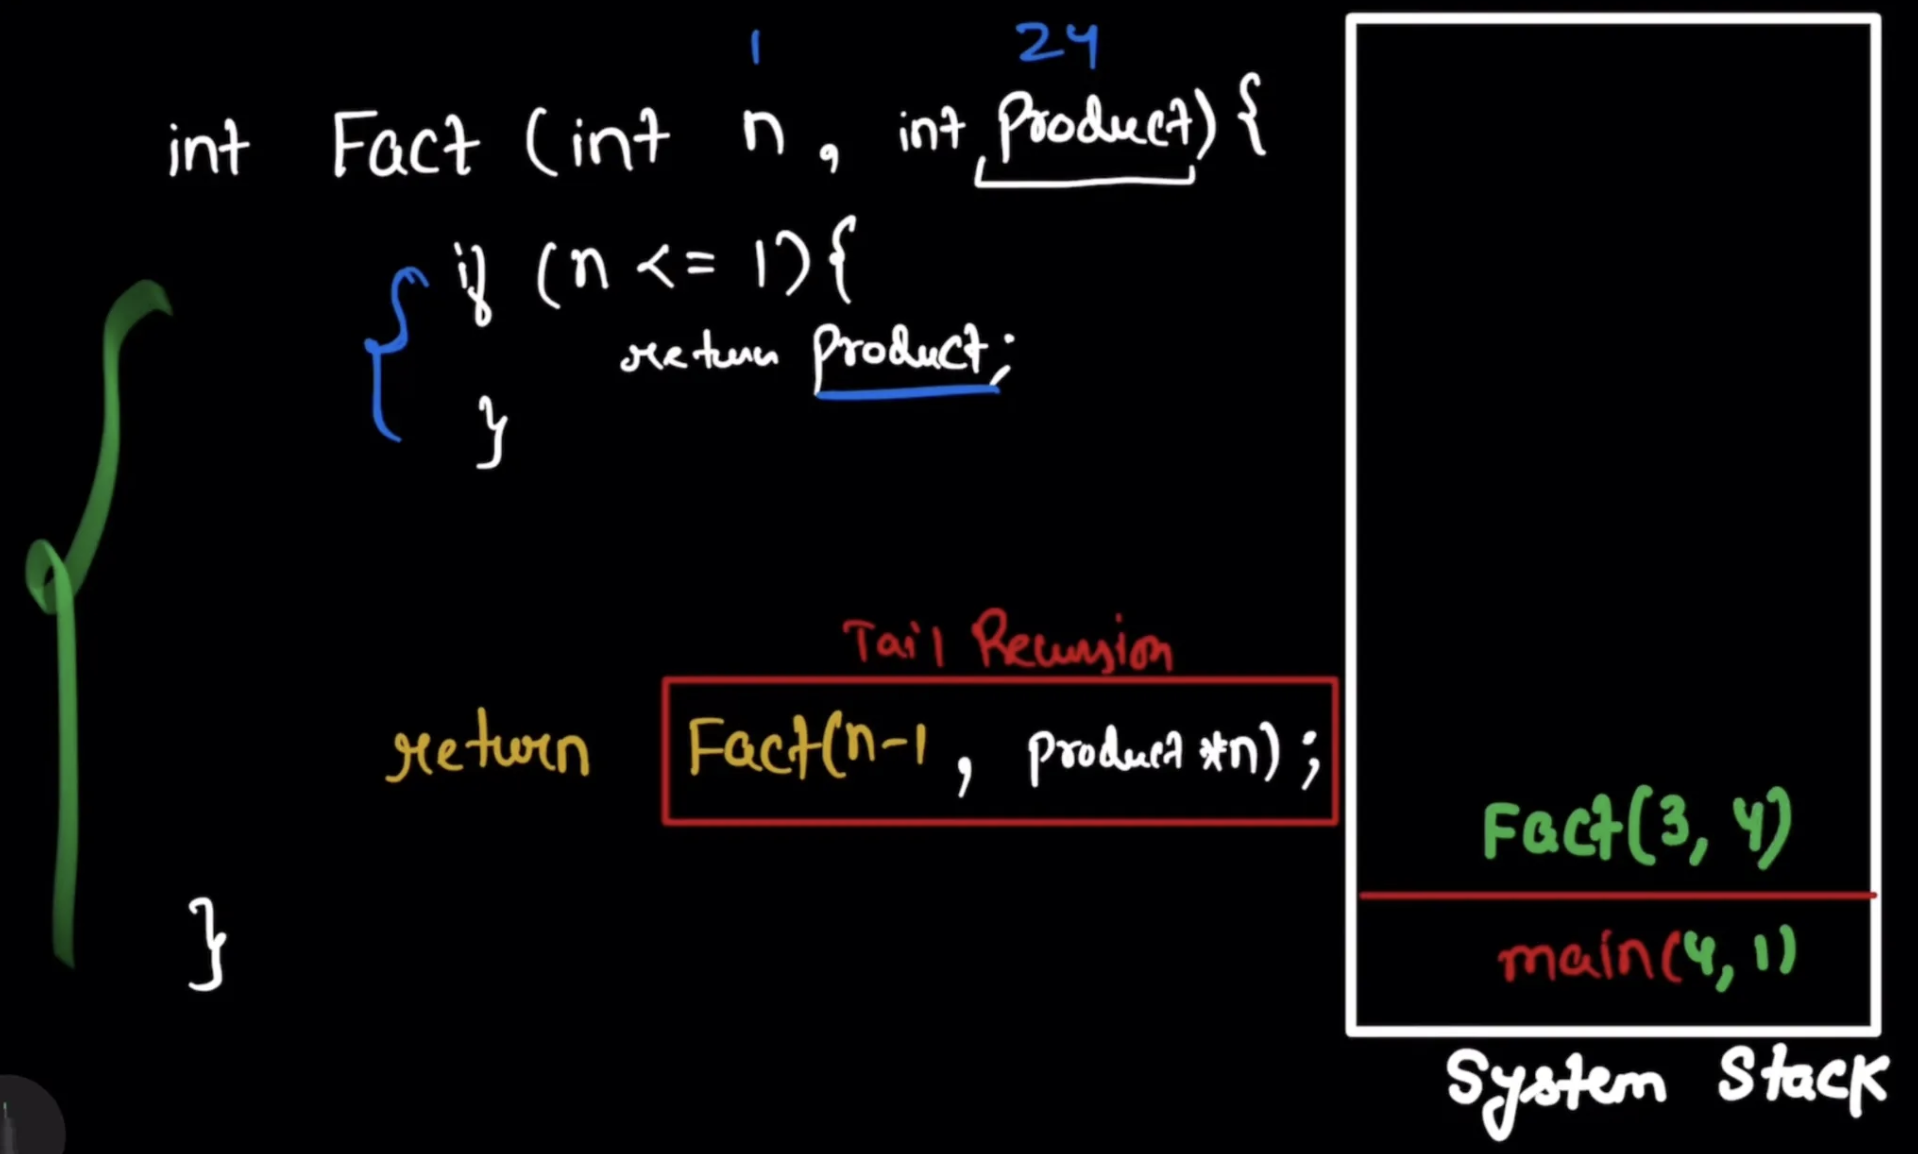 1 24
int Fact (int n, int product) {
if (n <= 1) {
return product;
}
Tail Recursion
return Fact(n-1, product *n);
}
Fact(3, 4)
main(4, 1)
System Stack